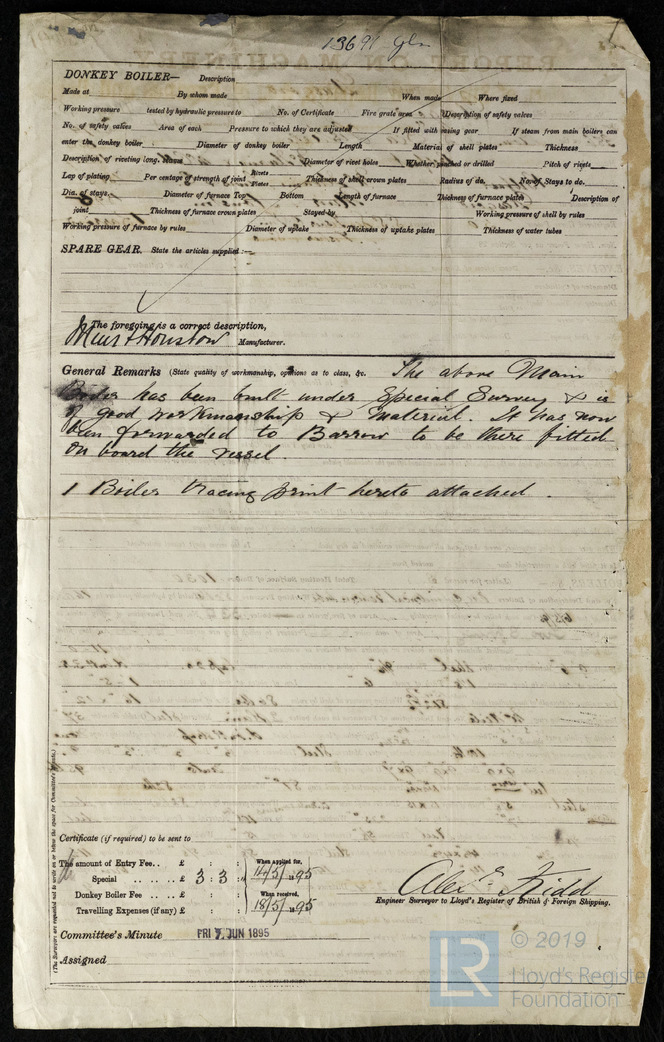 13691 Gls
DONKEY BOILER— Description
Made at By whom made When made Where fixed
Working pressure tested by hydraulic pressure to No. of Certificate Fire grate area Description of safety valves
No. of safety valves Area of each Pressure to which they are adjusted If fitted with easing gear If steam from main boilers can
enter the donkey boiler Diameter of donkey boiler Length Material of shell plates Thickness
Description of riveting long. seams Diameter of rivet holes Whether punched or drilled Pitch of rivets
Lap of plating Per centage of strength of joint Rivets Plates Thickness of shell crown plates Radius of do. No. of Stays to do.
Dia. of stays. Diameter of furnace Top Bottom Length of furnace Thickness of furnace plates Description of
joint Thickness of furnace crown plates Stayed by Working pressure of shell by rules
Working pressure of furnace by rules Diameter of uptake Thickness of uptake plates Thickness of water tubes
SPARE GEAR. State the articles supplied:—
The foregoing is a correct description,
Muir & Houston Manufacturer.
General Remarks (State quality of workmanship, opinions as to class, &c. The above Main
Boiler has been built under Special Survey & is
of good workmanship & material. It has now
been forwarded to Barrow to be there fitted
on board the vessel.
1 Boiler tracing print hereto attached.
(The Surveyors are requested not to write on or below the space for Committee's Minute.)
Certificate (if required) to be sent to
The amount of Entry Fee.. £ : : When applied for,
Special £ 3 : 3 : 14/5/1895
Donkey Boiler Fee £ : : When received,
Travelling Expenses (if any) £ : : 18/5/1895
Alex E Kidd
Engineer Surveyor to Lloyd's Register of British & Foreign Shipping.
Committee's Minute FRI 7 JUN 1895
Assigned
LR © 2019
Lloyd's Register
Foundation